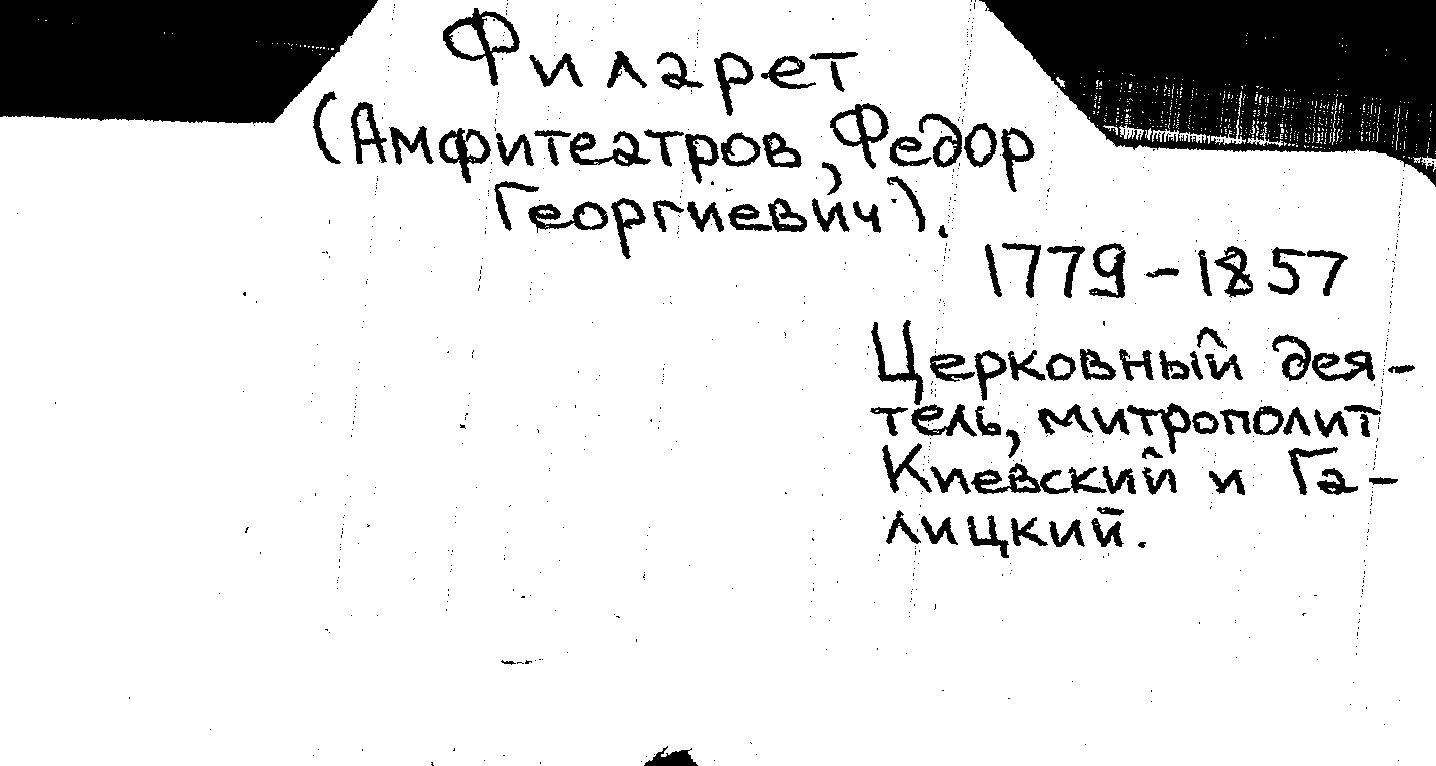 Филарет
(Амфитеатров, Федор
Георгиевич).
1779-1857
Церковный дея-
тель, митрополит
Киевский и Га-
лицкий.